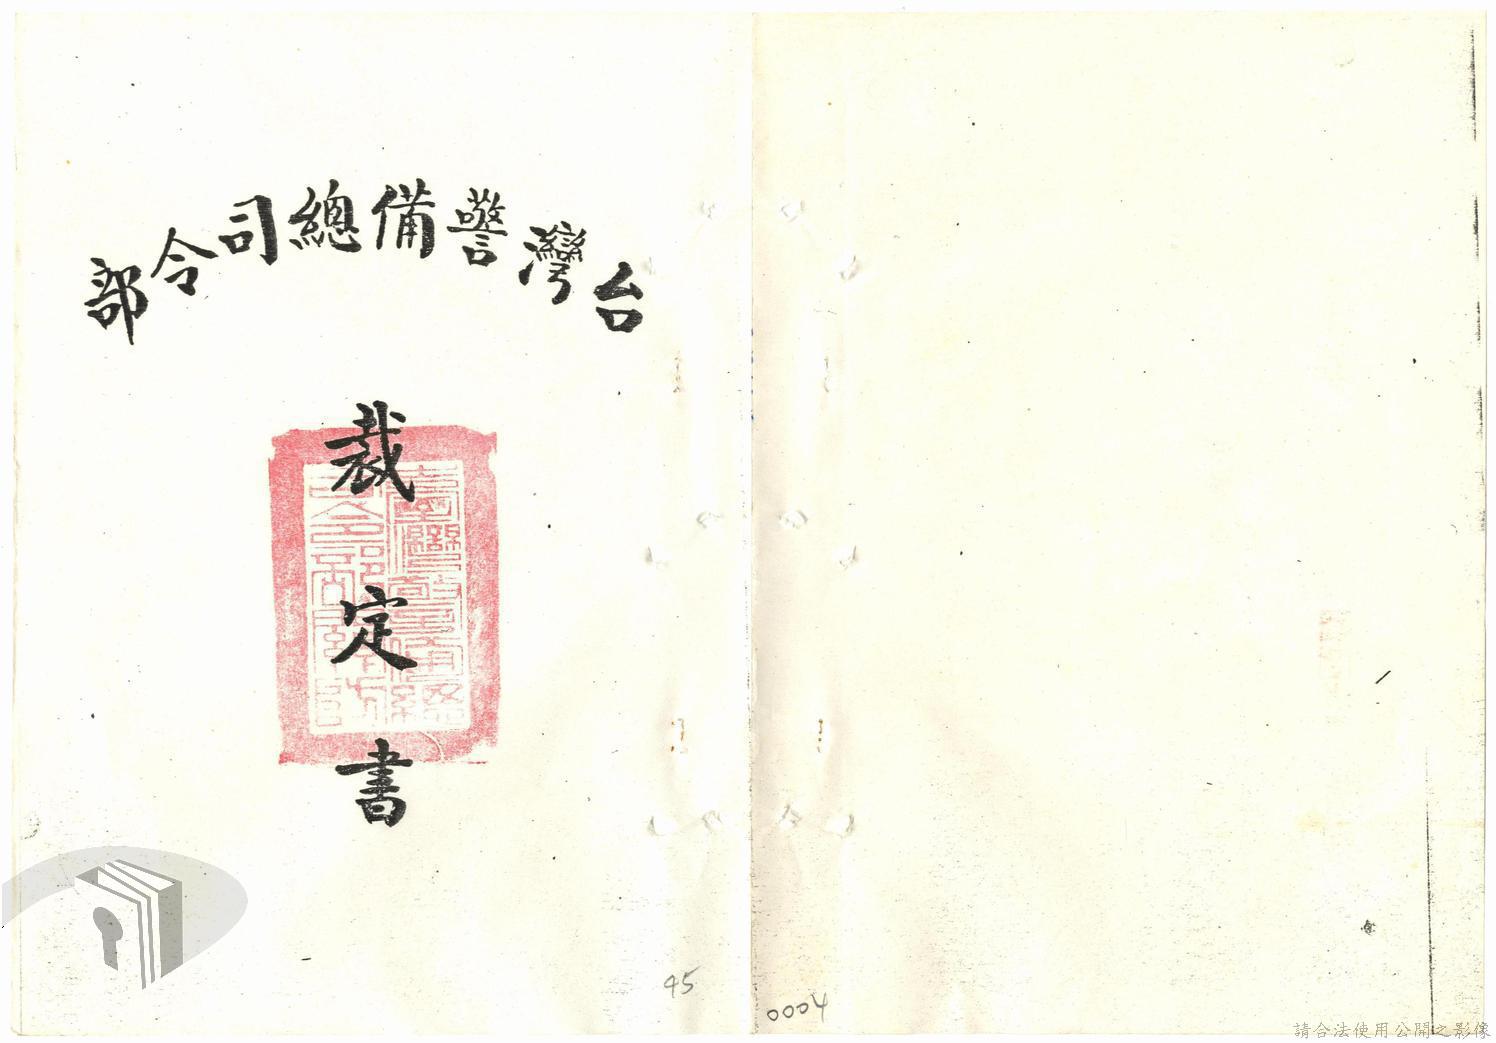 台灣警備總司令部
裁定書
45
0004
請合法使用公開之影像